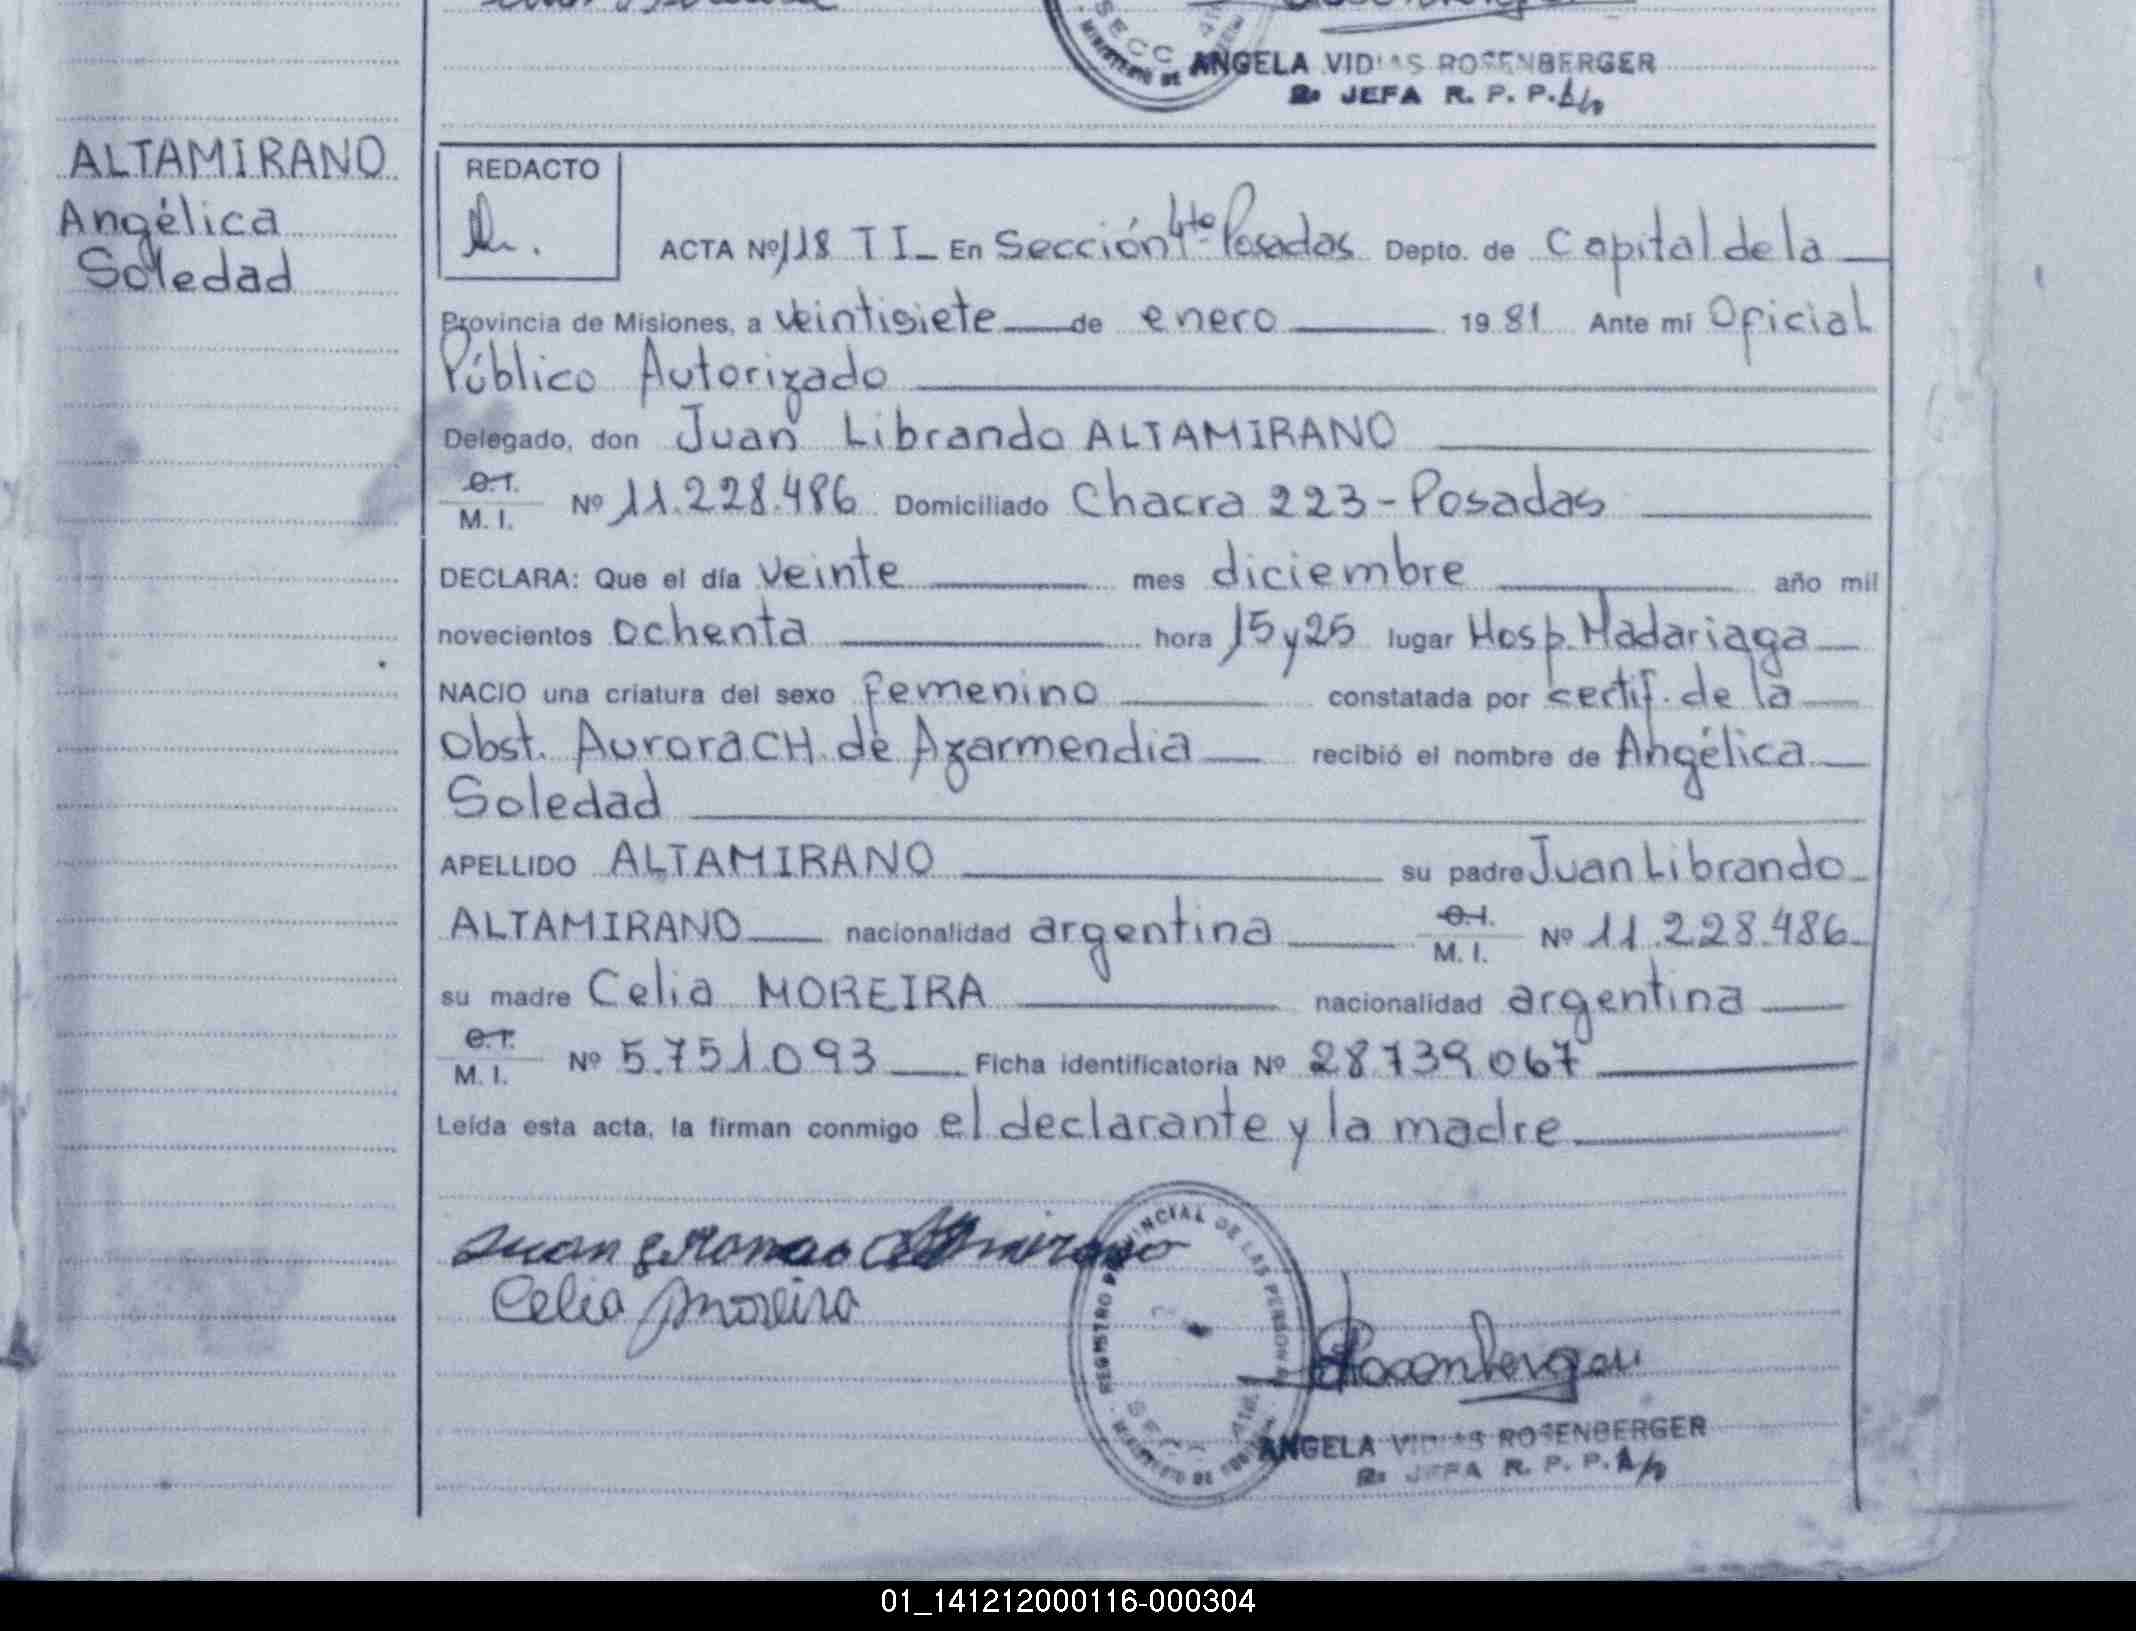 ANGELA VIDIAS ROSENBERGER
2a JEFA R. P. P. A/p
ALTAMIRANO
Angélica
Soledad
REDACTO
ACTA Nº 118 T I _ En Sección 4ta Posadas Depto. de Capital de la
Provincia de Misiones, a veintisiete de enero 19 81 Ante mi Oficial
Público Autorizado
Delegado, don Juan Librando ALTAMIRANO
M. I. Nº 11.228.486 Domiciliado Chacra 223 - Posadas
DECLARA: Que el día veinte mes diciembre año mil
novecientos ochenta hora 15 y 25 lugar Hosp. Madariaga
NACIO una criatura del sexo femenino constatada por certif. de la
Obst. Aurora CH. de Azarmendia recibió el nombre de Angélica
Soledad
APELLIDO ALTAMIRANO su padre Juan Librando
ALTAMIRANO nacionalidad argentina M. I. Nº 11.228.486
su madre Celia MOREIRA nacionalidad argentina
M. I. Nº 5.751.093 Ficha identificatoria Nº 28739067
Leída esta acta, la firman conmigo el declarante y la madre
Celia Moreira
REGISTRO PROVINCIAL DE LAS PERSONAS
SECC
MINISTERIO DE
Rosenberger
ANGELA VIDIAS ROSENBERGER
2a JEFA R. P. P. A/p
01_141212000116-000304